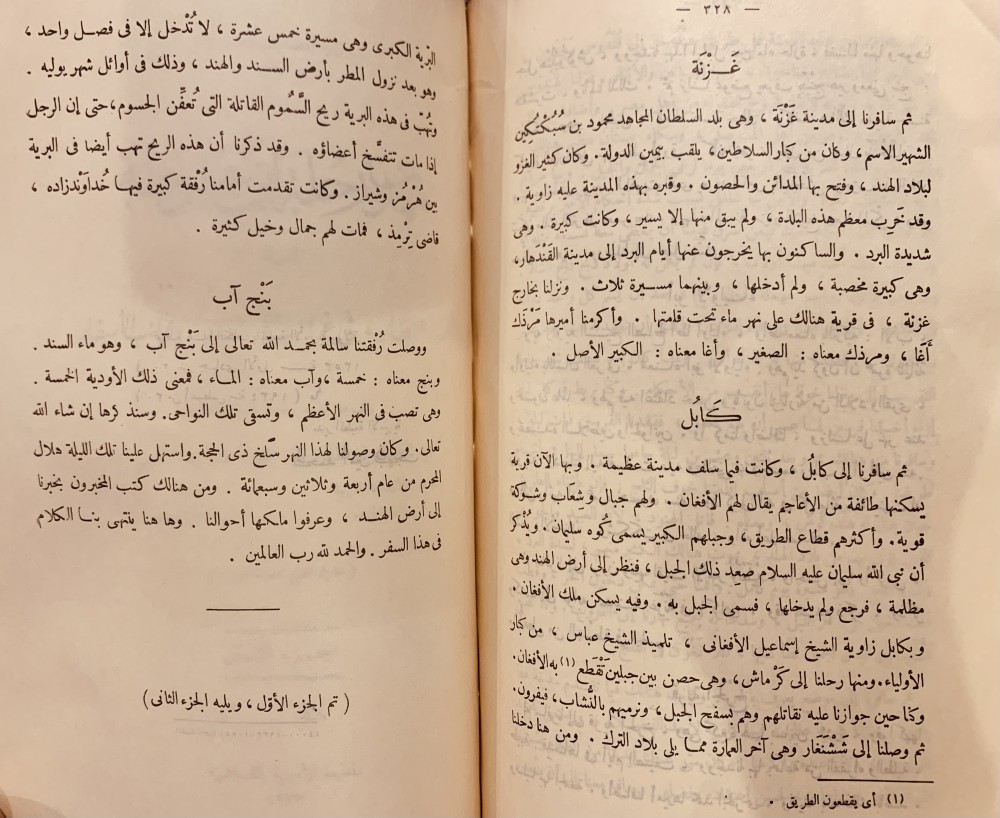 — ٣٢٨ —
غَـــزْنَة
ثم سافرنا إلى مدينة غَزْنَة ، وهى بلد السلطان المجاهد محمود بن سُبُكْتُكِين
الشهير الاسم ، وكان من كبار السلاطين، يلقب بيمين الدولة. وكان كثير الغزو
لبلاد الهند ، وفتح بها المدائن والحصون . وقبره بهذه المدينة عليه زاوية .
وقد خَرِب معظم هذه البلدة ، ولم يبق منها إلا يسير ، وكانت كبيرة . وهى
شديدة البرد . والساكنون بها يخرجون عنها أيام البرد إلى مدينة القَنْدَهار،
وهى كبيرة مخصبة ، ولم أدخلها ، وبينهما مسيرة ثلاث . ونزلنا بخارج
غزنة ، فى قرية هنالك على نهر ماء تحت قلعتها . وأكرمنا أميرها مَرْذَك
أَغَا ، ومرذك معناه : الصغير ، وأغا معناه : الكبير الأصل .
كَابُل
ثم سافرنا إلى كابلُ ، وكانت فيما سلف مدينة عظيمة . وبها الآن قرية
يسكنها طائفة من الأعاجم يقال لهم الأفغان . ولهم جبال وشِعَاب وشوكة
قوية. وأكثرهم قطاع الطريق، وجبلهم الكبير يسمى كُوه سليمان . ويُذْكر
أن نبى الله سليمان عليه السلام صعِد ذلك الجبل ، فنظر إلى أرض الهند وهى
مظلمة ، فرجع ولم يدخلها ، فسمى الجبل به . وفيه يسكن ملك الأفغان .
وبكابل زاوية الشيخ إسماعيل الأفغانى ، تلميذ الشيخ عباس ، من كبار
الأولياء. ومنها رحلنا إلى كَرْماش، وهى حصن بين جبلين تَقْطَع (١) به الأفغان.
وكنا حين جوازنا عليه نقاتلهم وهم بسفح الجبل، ونرميهم بالنُّشاب، فيفرون.
ثم وصلنا إلى شَشْنَغَار وهى آخر العمارة مما يلى بلاد الترك . ومن هنا دخلنا
(١) أى يقطعون الطريق .
البرية الكبرى وهى مسيرة خمس عشرة ، لا تُدْخل إلا فى فصل واحد ،
وهو بعد نزول المطر بأرض السند والهند ، وذلك فى أوائل شهر يوليه .
وتَهُبّ فى هذه البرية ريح السَّمُوم القاتلة التى تُعَفِّن الجسوم، حتى إن الرجل
إذا مات تتفسَّخ أعضاؤه . وقد ذكرنا أن هذه الريح تهب أيضا فى البرية
بين هُرْمُز وشيراز . وكانت تقدمت أمامنا رُفْقة كبيرة فيها خُداوَندزاده ،
قاضى تِرْمِذ ، فمات لهم جمال وخيل كثيرة .
بَنْج آب
ووصلت رُفْقتنا سالمة بحمد الله تعالى إلى بَنْج آب ، وهو ماء السند .
وبنج معناه : خمسة ، وآب معناه : الماء ، فمعنى ذلك الأودية الخمسة .
وهى تصب فى النهر الأعظم ، وتسقى تلك النواحى. وسنذكرها إن شاء الله
تعالى. وكان وصولنا لهذا النهر سَلْخ ذى الحجة. واستهل علينا تلك الليلة هلال
المحرم من عام أربعة وثلاثين وسبعمائة . ومن هنالك كتب المخبرون بخبرنا
إلى أرض الهند ، وعرفوا ملكها أحوالنا . وها هنا ينتهى بنا الكلام
فى هذا السفر . والحمد لله رب العالمين .
( تم الجزء الأوّل ، ويليه الجزء الثانى )